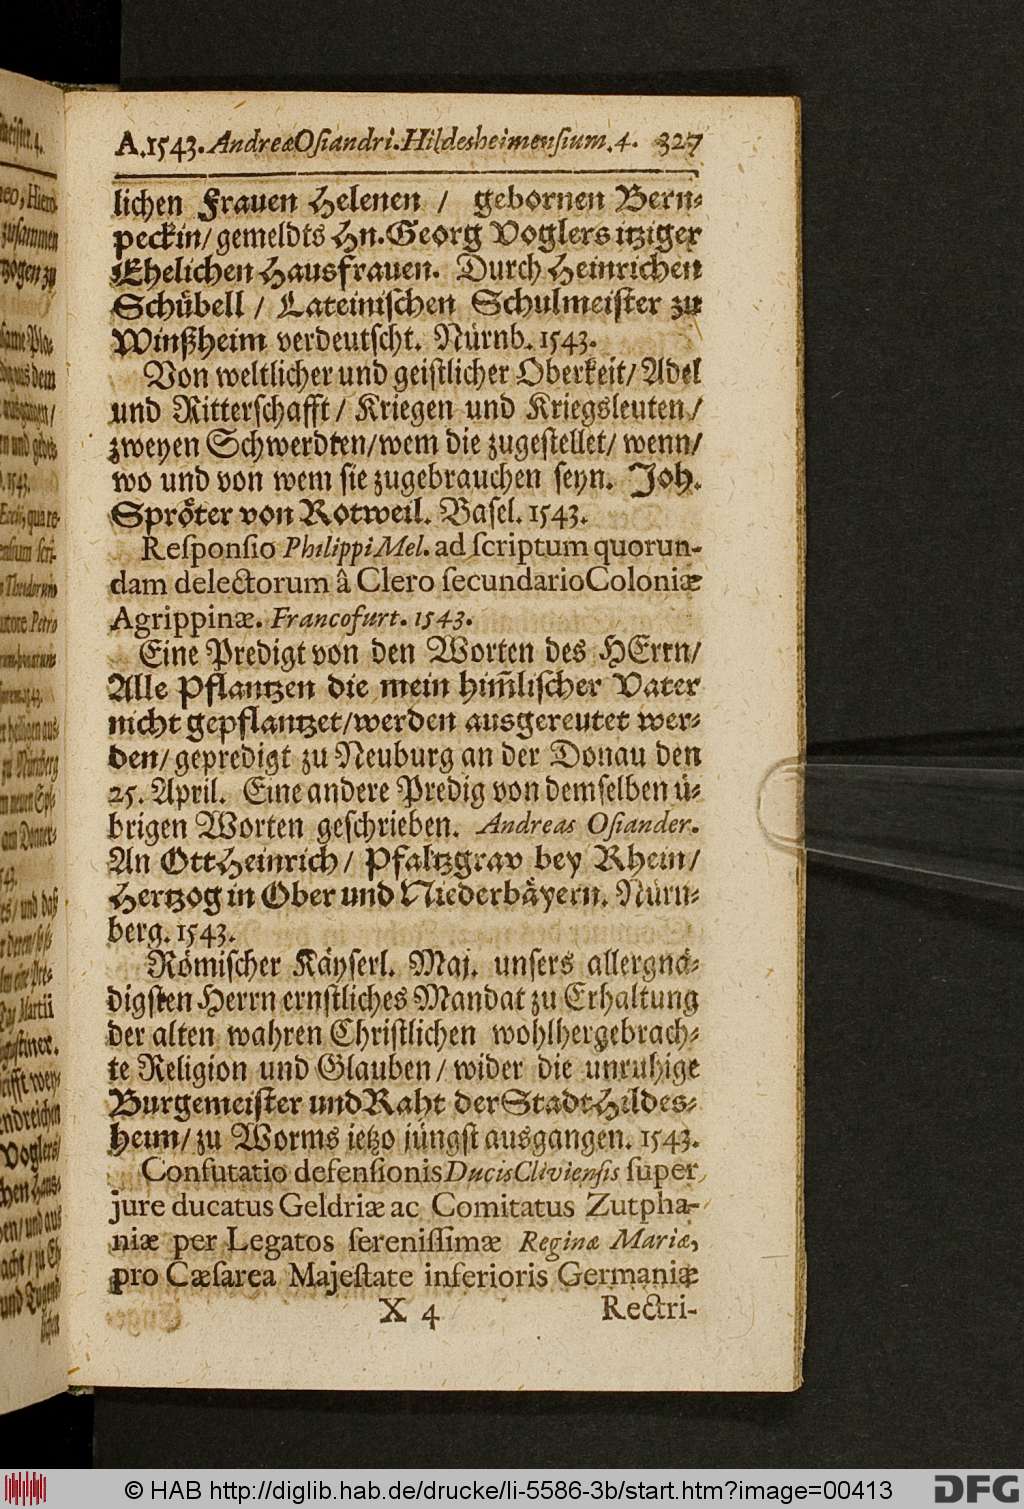 A. 1543. Andreæ Osiandri. Hildesheimensium. 4. 327
lichen Frauen Helenen / gebornen Bern-
peckin / gemeldts Hn. Georg Voglers itziger
Ehelichen Hausfrauen. Durch Heinrichen
Schübell / Lateinischen Schulmeister zu
Winßheim verdeutscht. Nürnb. 1543.
Von weltlicher und geistlicher Oberkeit / Adel
und Ritterschafft / Kriegen und Kriegsleuten /
zweyen Schwerdten / wem die zugestellet / wenn /
wo und von wem sie zugebrauchen seyn. Joh.
Spröter von Rotweil. Basel. 1543.
Responsio Philippi Mel. ad scriptum quorun-
dam delectorum â Clero secundario Coloniæ
Agrippinæ. Francofurt. 1543.
Eine Predigt von den Worten des HErrn /
Alle Pflantzen die mein him̃lischer Vater
nicht gepflantzet / werden ausgereutet wer-
den / gepredigt zu Neuburg an der Donau den
25. April. Eine andere Predig von demselben ü-
brigen Worten geschrieben. Andreas Osiander.
An Ott Heinrich / Pfaltzgrav bey Rhein /
Hertzog in Ober und Niederbäyern. Nürn-
berg. 1543.
Römischer Käyserl. Maj. unsers allergnä-
digsten Herrn ernstliches Mandat zu Erhaltung
der alten wahren Christlichen wohlhergebrach-
te Religion und Glauben / wider die unruhige
Burgemeister und Raht der Stadt Hildes-
heim / zu Worms jetzo jüngst ausgangen. 1543.
Confutatio defensionis Ducis Cliviensis super
jure ducatus Geldriæ ac Comitatus Zutpha-
niæ per Legatos serenissimæ Reginæ Mariæ,
pro Cæsarea Majestate inferioris Germaniæ
X 4 Rectri-
© HAB http://diglib.hab.de/drucke/li-5586-3b/start.htm?image=00413
DFG